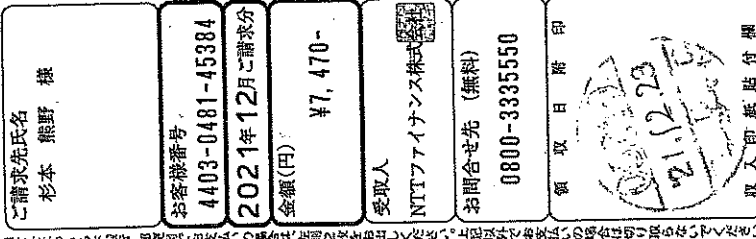 ご請求先氏名
杉本 熊野 様
お客様番号
4403-0481-45384
2021年12月ご請求分
金額(円)
¥7,470-
受取人
NTTファイナンス株式会社
お問合せ先 (無料)
0800-3335550
領収日附印
'21.12.23
収入印紙貼付欄